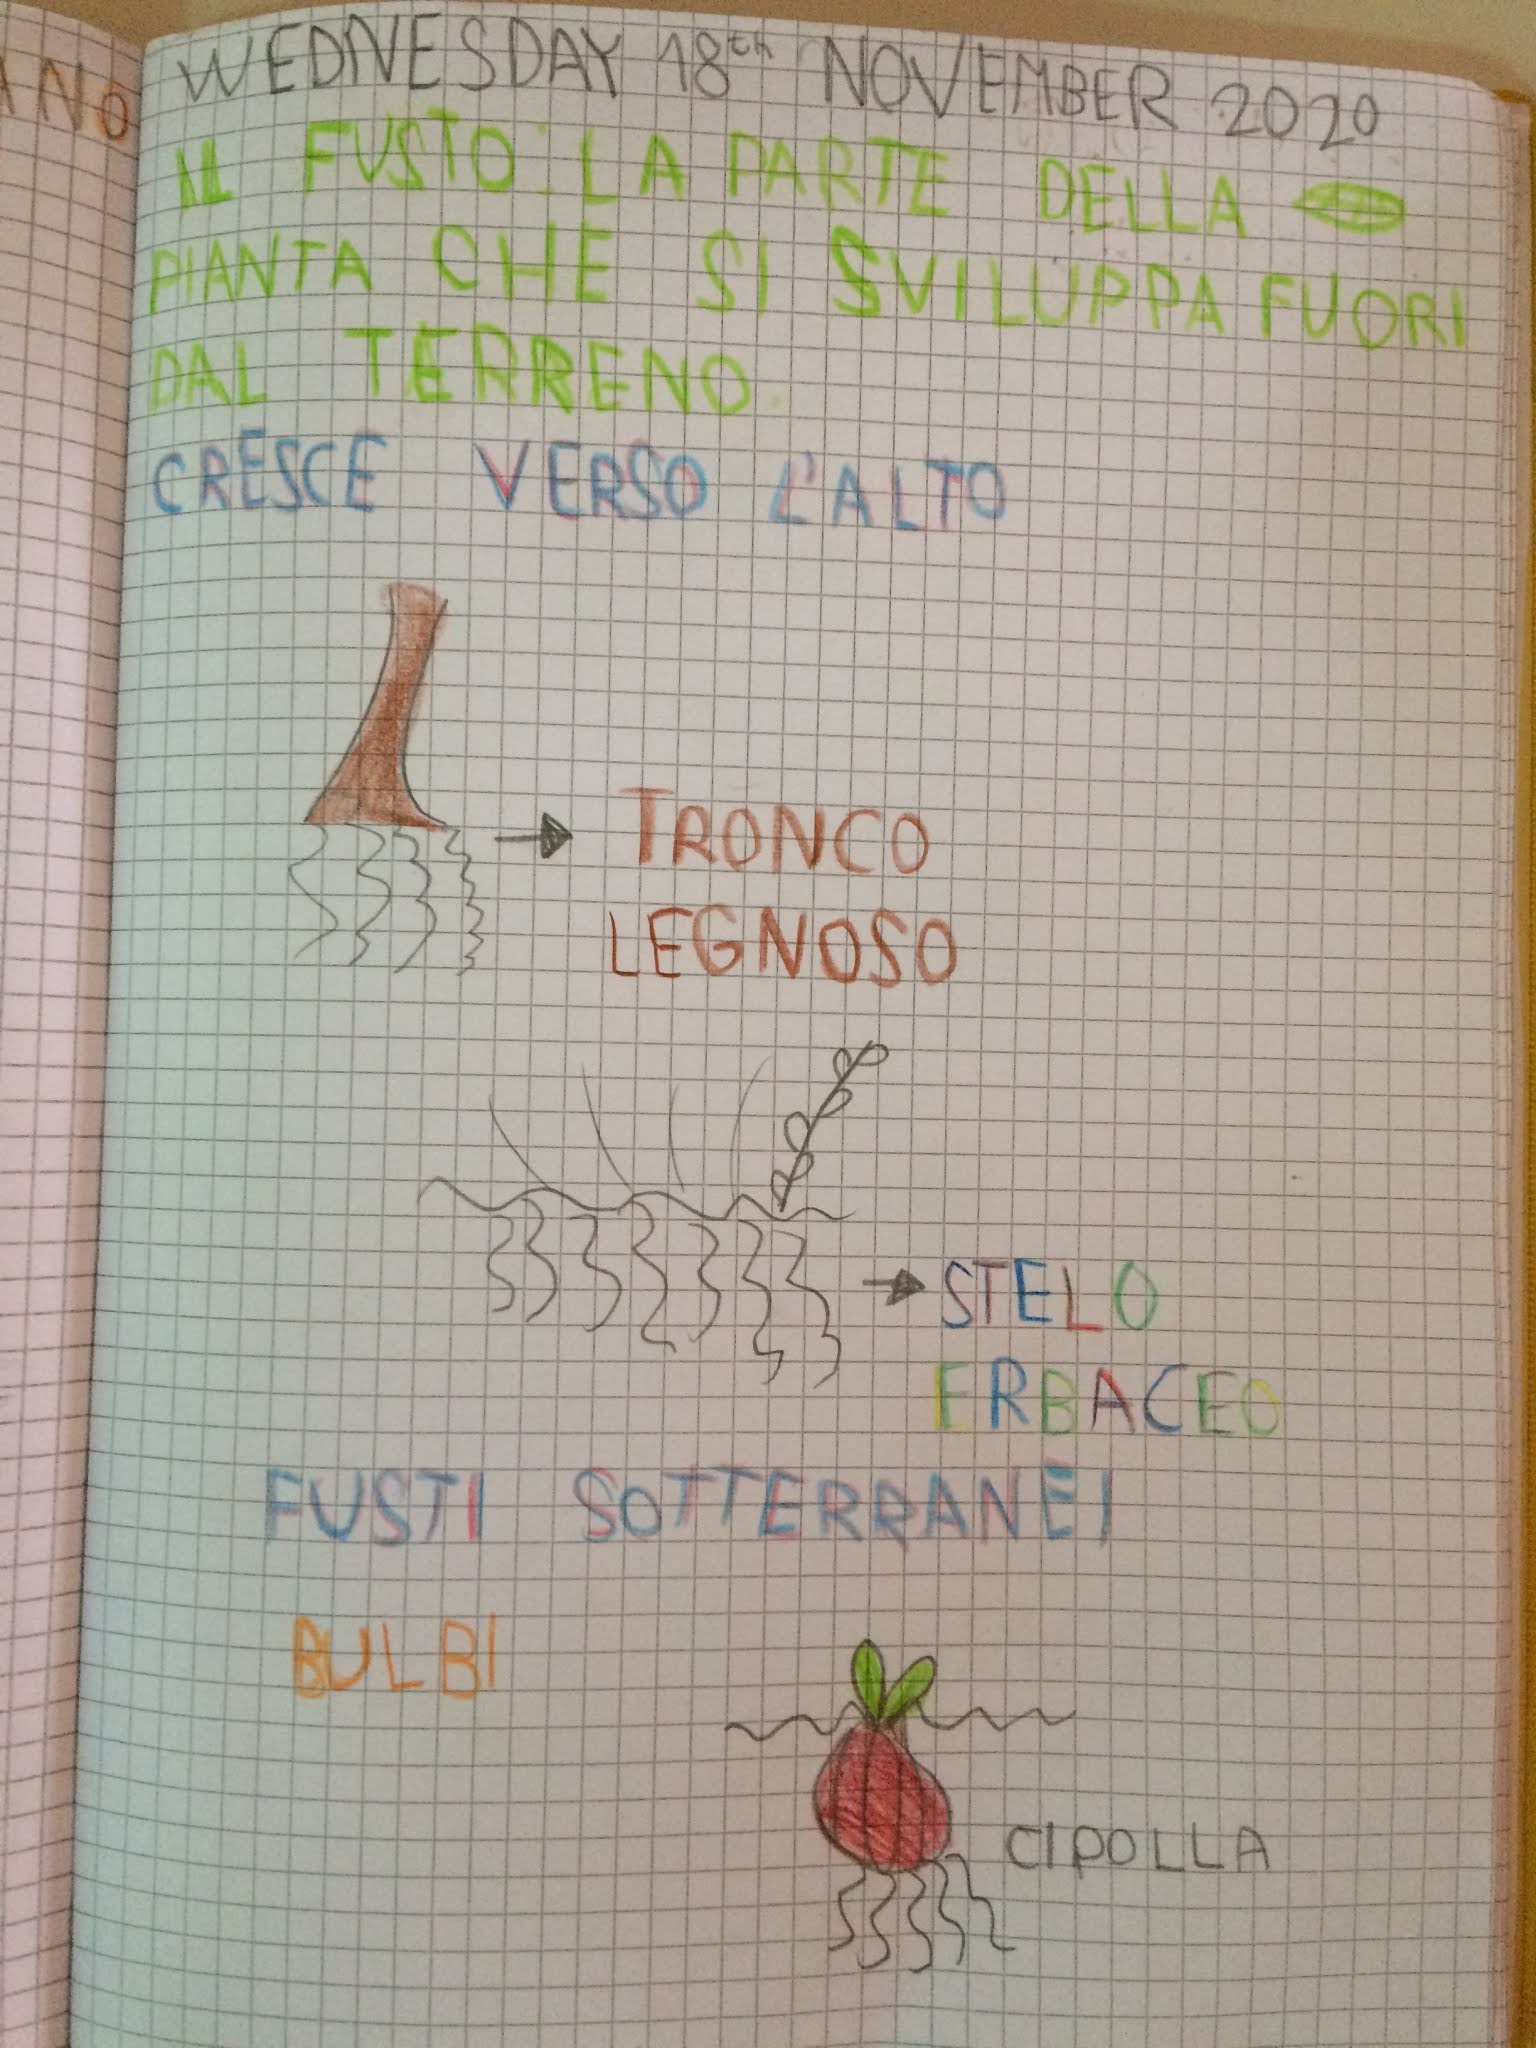 ANO
WEDNESDAY 18th NOVEMBER 2020
IL FUSTO: LA PARTE DELLA
PIANTA CHE SI SVILUPPA FUORI
DAL TERRENO.
CRESCE VERSO L'ALTO
TRONCO
LEGNOSO
STELO
ERBACEO
FUSTI SOTTERRANEI
BULBI
CIPOLLA